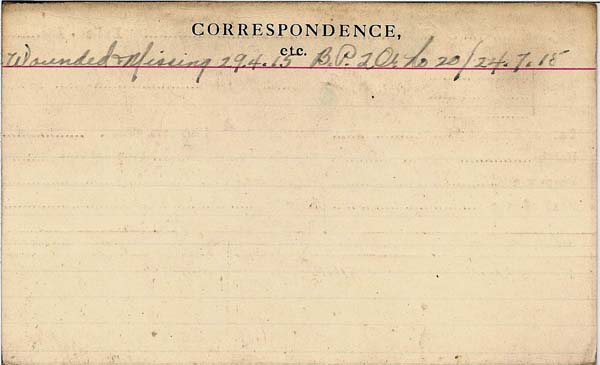 CORRESPONDENCE,
etc.
Wounded & Missing 29.4.15 B.P. 2 Or. No 20/24.7.15